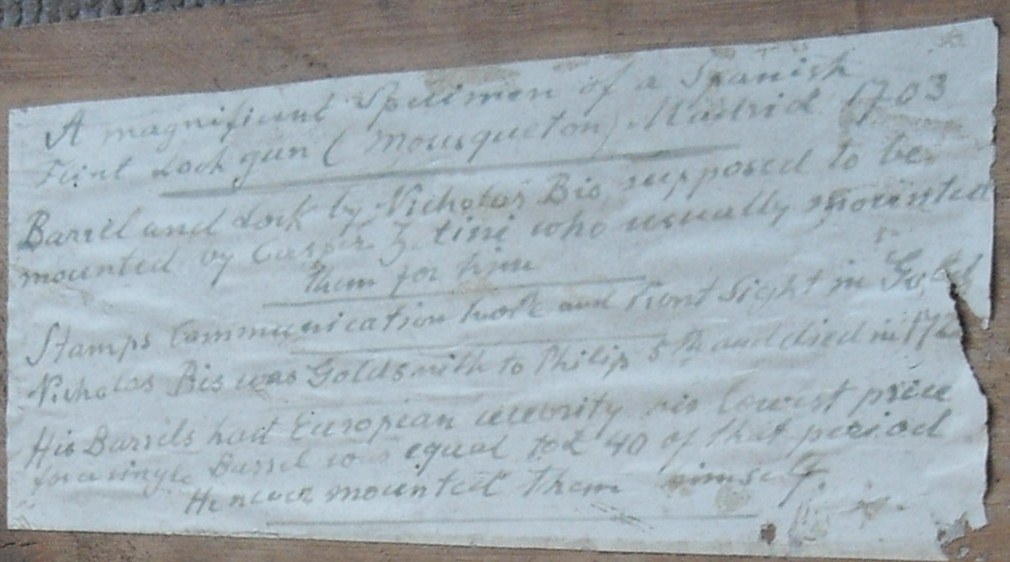 A magnificent Specimen of a Spanish
Flint Lock gun (Mousqueton) Madrid 1703
Barrel and Lock by Nicholas Bis supposed to be
mounted by who usually mounted
them for him
Stamps Communication hole and Front Sight in Gold
Nicholas Bis was Goldsmith to Philip 5th and died in 172
His Barrels had European celebrity his lowest price
for a single Barrel was equal to £ 40 of that period
He never mounted them himself.